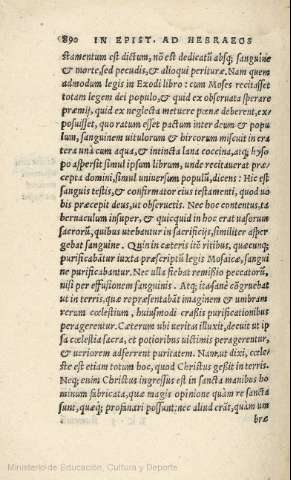 890 IN EPIST. AD HEBRAEOS
stamentum est dictum, nō est dedicatū absq; sanguine
& morte, sed pecudis, & alioqui perituræ. Nam quem
admodum legis in Exodi libro: cum Moses recitasset
totam legem dei populo, & quid ex obseruata sperare
præmij, quid ex neglecta metuere pœnæ deberent, ex
posuisset, quo ratum esset pactum inter deum & popu
lum, sanguinem uitulorum & hircorum miscuit in cra
tera unà cum aqua, & intincta lana coccina, atq; hyso
po aspersit simul ipsum librum, unde recitauerat præ-
cepta domini, simul uniuersum populū, dicens: Hic est
sanguis testis, & confirmator eius testamenti, quod uo
bis præcepit deus, ut obseruetis. Nec hoc contentus, ta
bernaculum insuper, & quicquid in hoc erat uasorum
sacrorū, quibus utebantur in sacrificijs, similiter asper
gebat sanguine. Quin in cæteris itē ritibus, quæcunq;
purificabātur iuxta præscriptū legis Mosaicæ, sangui
ne purificabantur. Nec ulla fiebat remissio peccatorū,
nisi per effusionem sanguinis. Atq; ita sanè cōgruebat
ut in terris, quæ repræsentabāt imaginem & umbram
rerum cœlestium, huiusmodi crassis purificationibus
peragerentur. Cæterum ubi ueritas illuxit, decuit ut ip
sa cœlestia sacra, et potioribus uictimis peragerentur,
& ueriorem adferrent puritatem. Nam, ut dixi, cœle-
ste est etiam totum hoc, quod Christus gessit in terris.
Neq; enim Christus ingressus est in sancta manibus ho
minum fabricata, quæ magis opinione quàm re sancta
sunt, quæq; profanari possunt: nec aliud erāt, quàm um
bræ
Ministerio de Educación, Cultura y Deporte